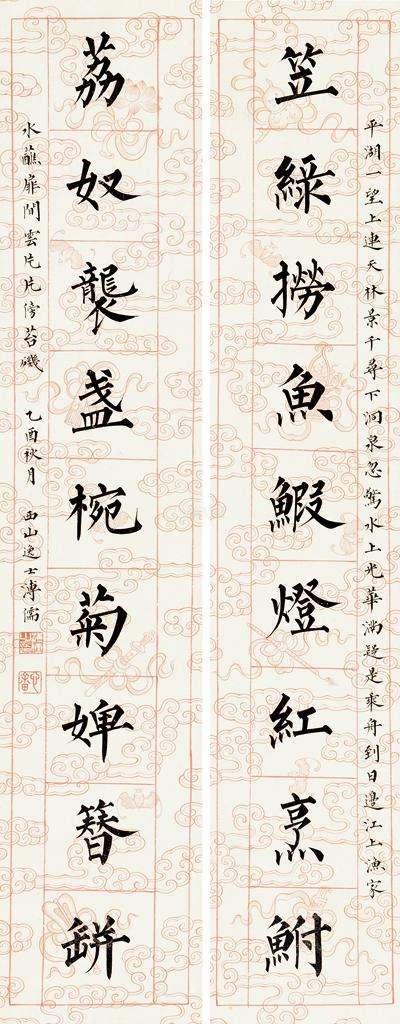 平湖一望上連天林景千尋下洞泉忽驚水上光華滿疑是乘舟到日邊江上漁家
笠綠撈魚鰕燈紅烹鮒
荔奴襲盞椀菊婢簪缾
水蘸扉間雲片片傍苔磯 乙酉秋月 西山逸士溥儒